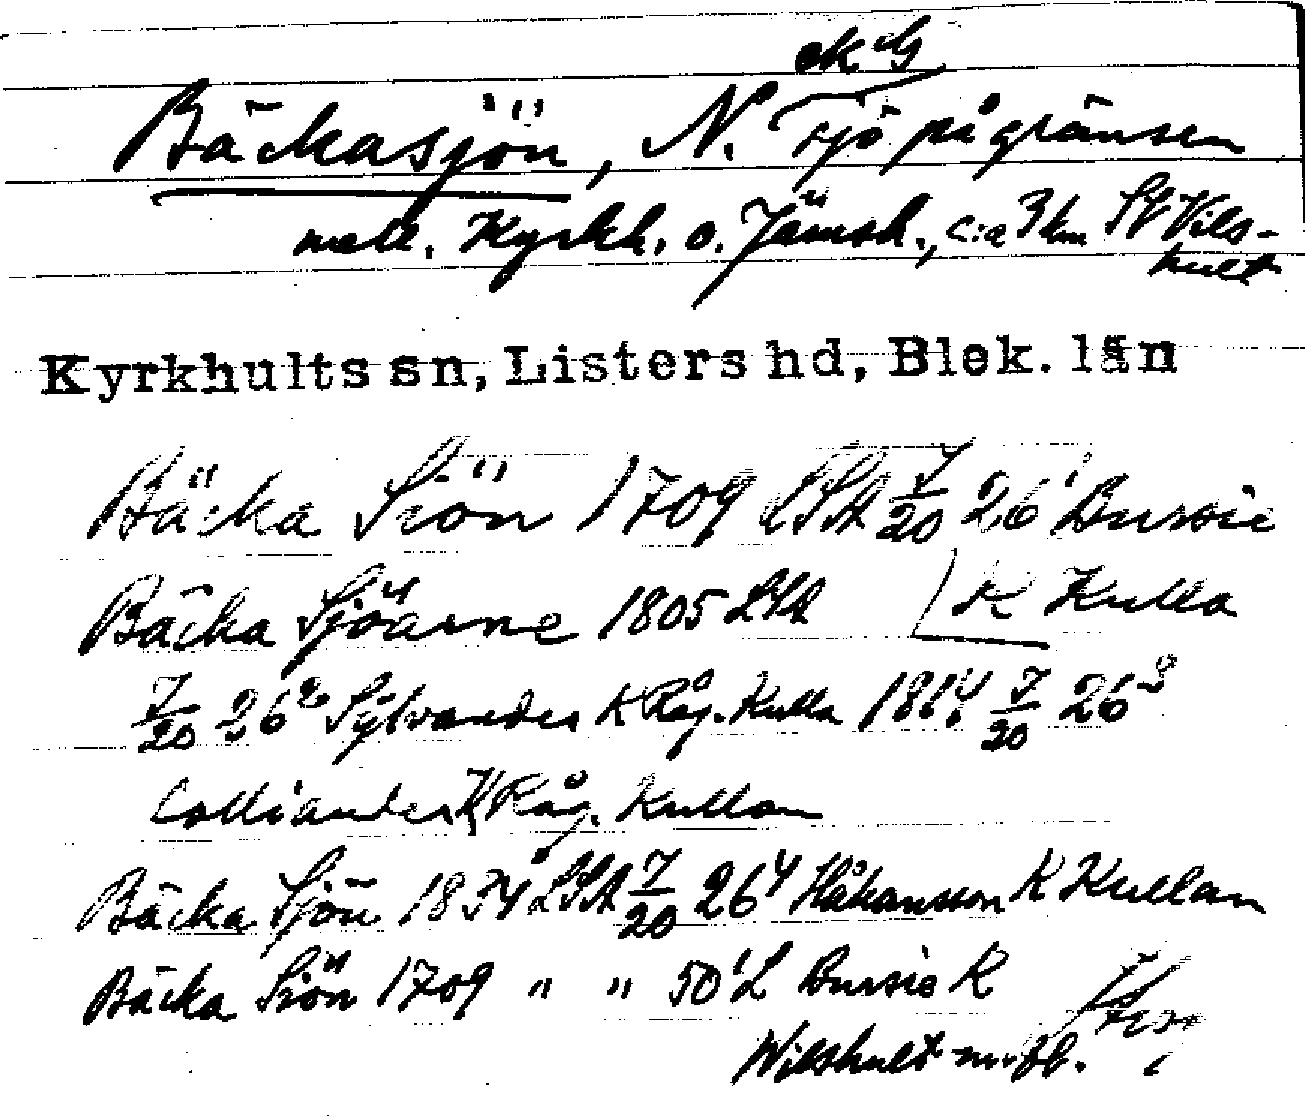 ek bl
Bäckasjön, N. sjö på gränsen
mell. Kyrkh. o. Jämsh., c:a 3 km SV Vils-
hult
Kyrkhults sn, Listers hd, Blek. län
Bäcka Siön 1709 LSA 7/20 26¹ Bursie
Bäcka Sjöarne 1805 LSA K Kulla
7/20 26² Sylvander K Råg. Kulla 1864 7/20 26³
Colliander K Råg. Kullan
Bäcka Sjön 1834 LSA 7/20 26⁴ Håkansson K Kullan
Bäcka Siön 1709 " " 50¹ L Bursie K
Wilshult m. fl.